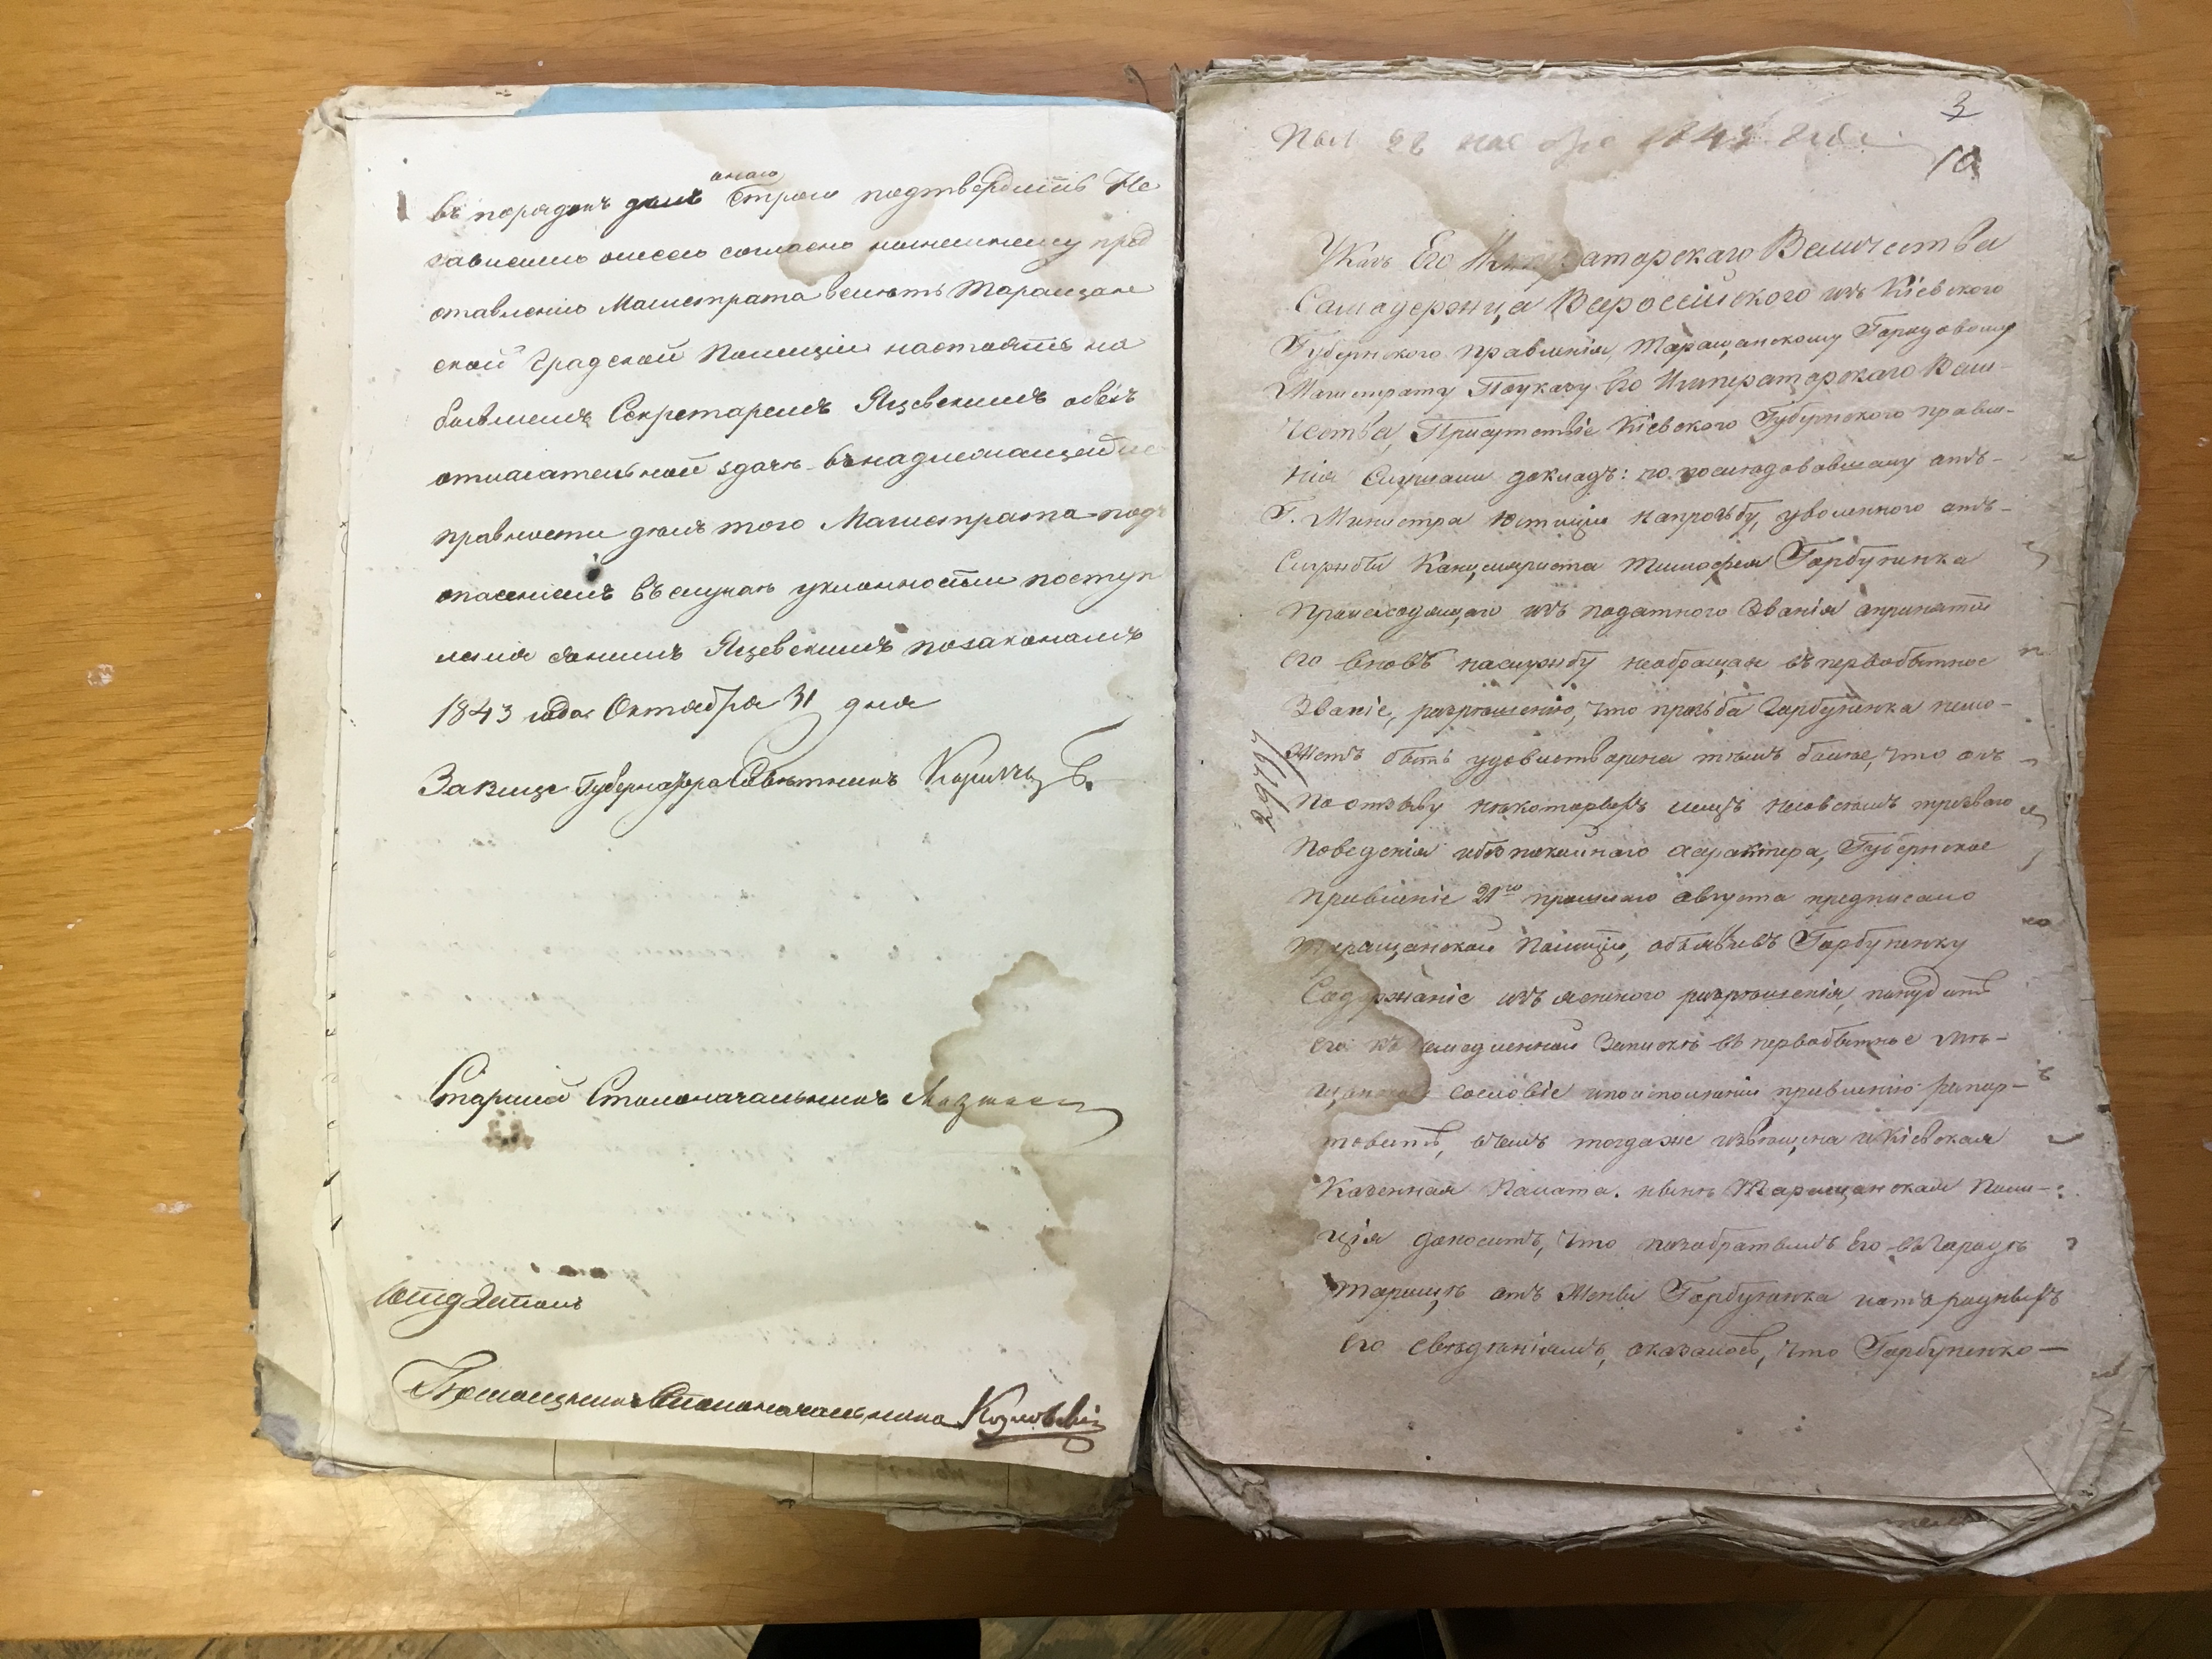 онаго
въ порядокъ дѣлъ строго подтвердить Не
зависимо онаго согласно нынешнему пред
ставленію Магистрата велѣть Таращан
ской Градской Полиціи настоять на
бывшемъ Секретаремъ Яцевскимъ объ
отлагательной здачѣ въ надлежащей
правности дѣлъ того Магистрата подъ
опасеніемъ въ случаѣ уклонности поступ
ленія съ нимъ Яцевскимъ по законамъ
1843 года Октября 31 дня
За Вице Губернатора Совѣтникъ
Старшій Столоначальникъ
Помощникъ Столоначальника Козловскій
3
Пол 28 ноября 1843 года
10
Указъ Его Императорскаго Величества
Самодержца Всероссійского изъ Кіевского
Губернского Правленія, Таращанскому Городовому
Магистрату По указу Его Императорскаго Вели-
чества, Присутствіе Кіевского Губернского правле-
нія Слушали докладъ: по последовавшему отъ-
Г. Министра Юстиціи на прозьбу, уволенного отъ-
Службы Канцеляриста Тимофея Горбупенка
происходящаго изъ податного Званія о принятіи
его вновь на службу необращая въ первобытное
Званіе, разрѣшенію, что прозьба Горбупенка немо-
жетъ быть удовлетворена тѣмъ болѣе, что онъ
2979
по отзыву нѣкоторыхъ лицъ несовсемъ трезваго
поведенія и безпокойнаго характера, Губернское
правленіе 21го прошлаго августа предписало
Таращанской Полиціи, объявивъ Горбупенку
Содержаніе изъясненного разрѣшенія, понудить
его къ немедленной Запискѣ въ первобытное мѣ-
щанское сословіе и по исполненіи правленію рапор-
товать, о чемъ тогда же извѣщена и Кіевская
Казенная Палата. нынѣ Таращанская Поли-
ція доноситъ, что по забратымъ Его въ Городѣ
Таращѣ отъ Жены Горбупенка и отъ родныхъ
его свѣдѣніямъ, оказалось, что Горбупенко-